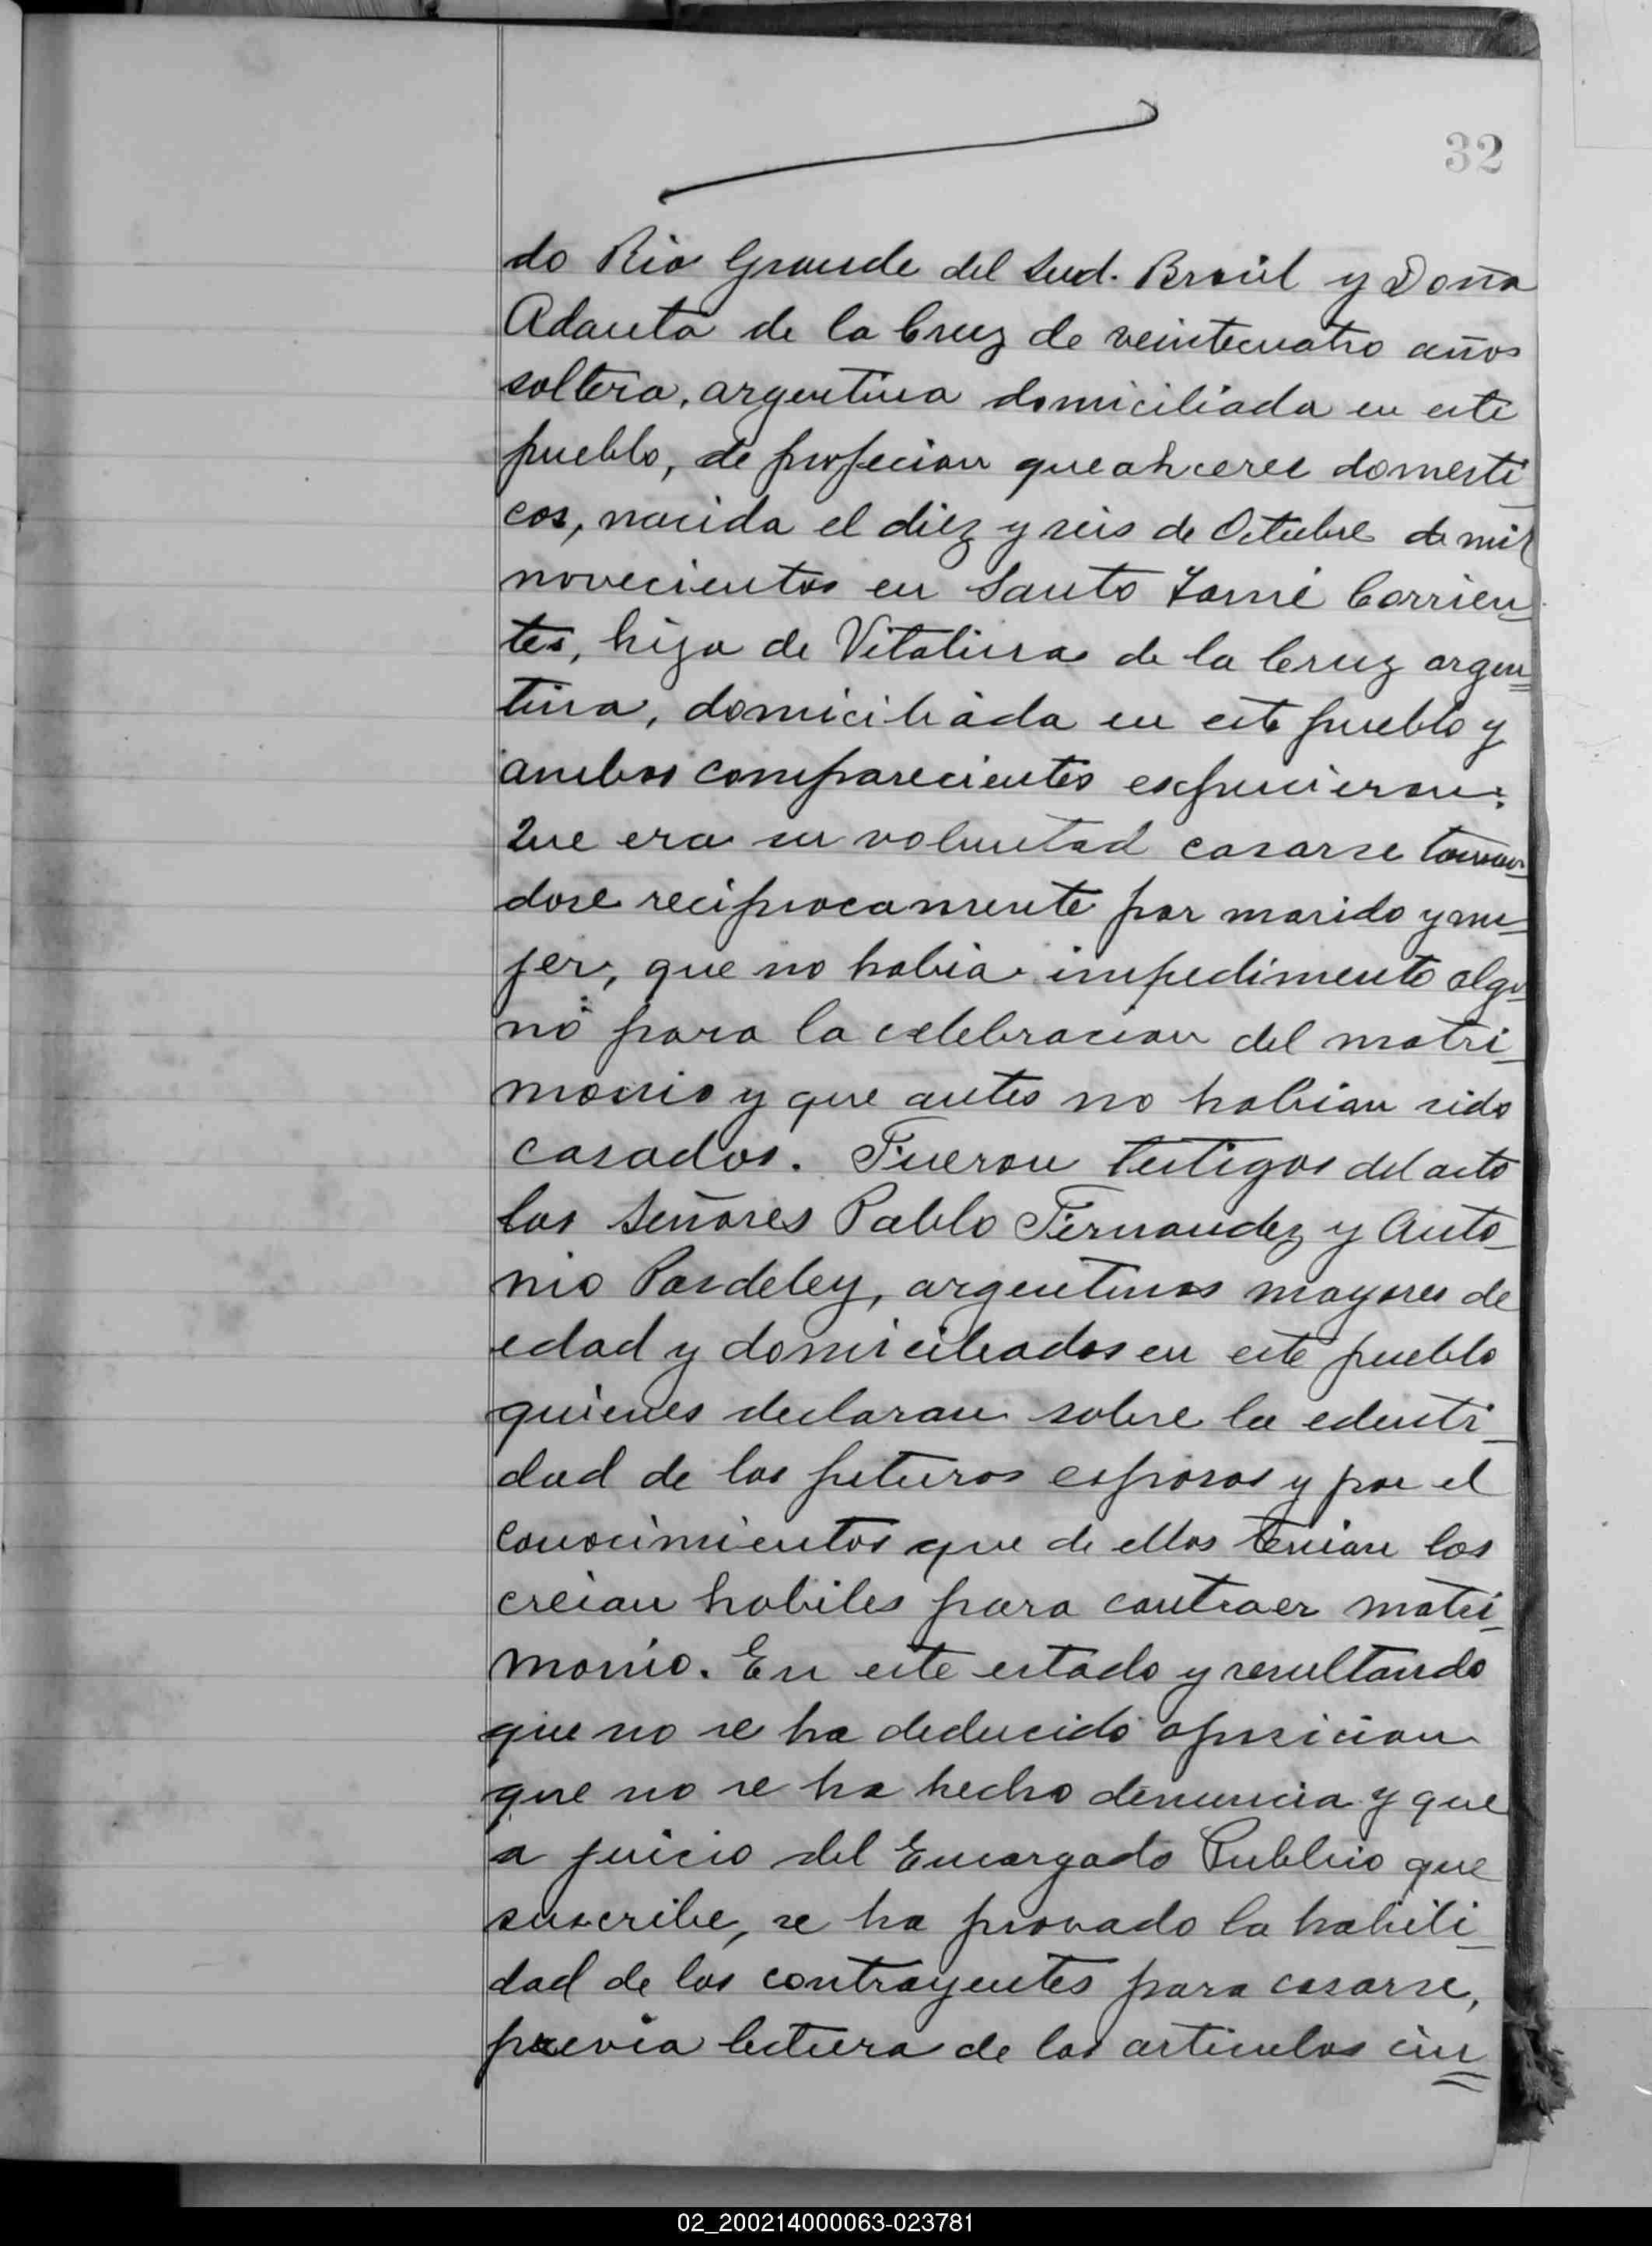 32
do Rio Grande del Sud. Brasil y Doña
Adauta de la Cruz de veintecuatro años
soltera, argentina domiciliada en este
pueblo, de profecion queahceres domesti
cos, nacida el diez y seis de Octubre de mil
novecientos en Santo Tomé Corrien
tes, hija de Vitalina de la Cruz argen
tina, domiciliada en este pueblo y
ambos comparecientes expucieron:
Que era su voluntad casarse toman
dose reciprocamente por marido y mu
jer, que no habia impedimento algu
no para la celebracion del matri
monio y que antes no habian sido
casados. Fueron testigos del acto
los Señores Pablo Fernandez y Anto
nio Pardeley, argentinos mayores de
edad y domiciliados en este pueblo
quienes declaran sobre la edenti
dad de los futuros esposos y por el
conocimientos que de ellos tenian los
creian habiles para contraer matri
monio. En este estado y resultando
que no se ha deducido oposicion
que no se ha hecho denuncia y que
a juicio del Encargado Publico que
suscribe, se ha provado la habili
dad de los contrayentes para casarse,
previa lectura de los articulos cin
02_200214000063-023781